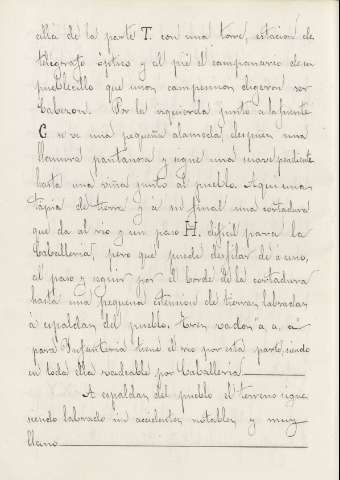 allá de la parte T. con una torre, estacion de
telégrafo óptico y al pié el campanario de un
pueblecillo que unos campesinos dijeron ser
Cabezon. Por la izquierda junto a la fuente
C se ve una pequeña alameda, despues una
llanura pantanosa y sigue una suave pendiente
hasta una viña junto al pueblo. Aqui una
tapia de tierra y á su final una cortadura
que da al rio y un paso H. dificil para la
Caballeria, pero que puede desfilar de á uno,
al paso y seguir por el borde de la cortadura
hasta una pequeña estension de tierras labradas
á espaldas del pueblo. Tres vados a, a, a
para Infanteria tiene el rio por esta parte, siendo
en toda ella vadeable por Caballeria
A espaldas del pueblo el terreno sigue
siendo labrado sin accidentes notables y muy
llano